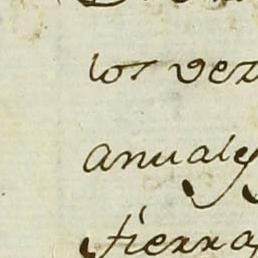 los vez
anuales
tierra